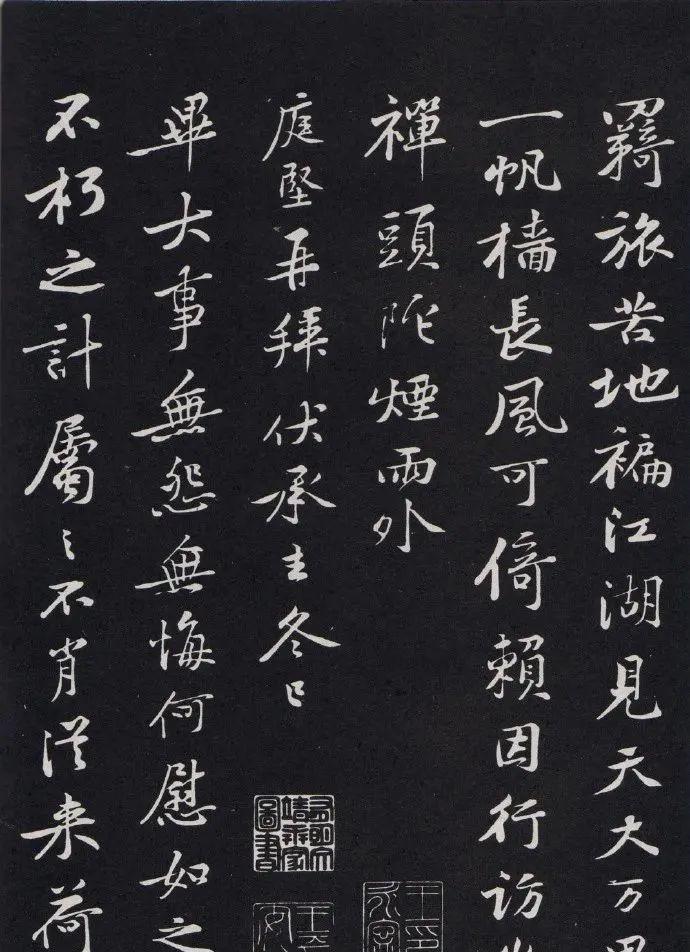 羇旅苦地褊江湖見天大万里
一帆檣長風可倚賴因行訪幽
禪頭陀煙雨外
庭堅再拜伏承主冬已
畢大事無怨無悔何慰如之
不朽之計屬〻不肖従来荷
圖書